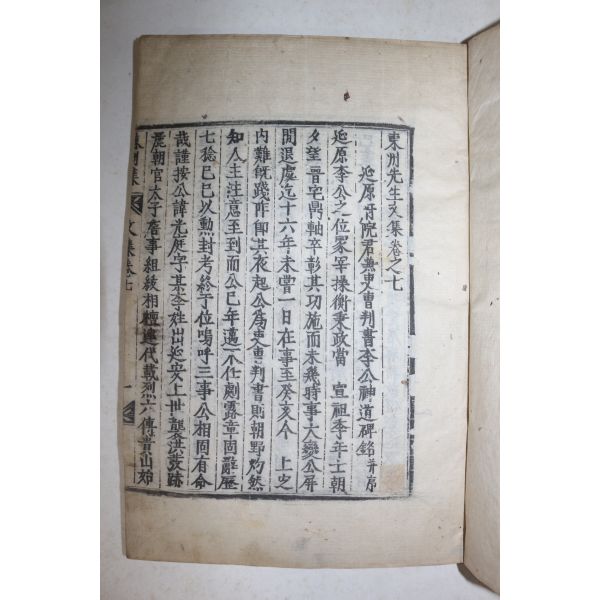 東州先生文集卷之七
延原府院君兼吏曹判書李公神道碑銘 并序
延原李公之位冢宰操衡秉政當 宣祖季年士朝
夕望晉宅鼎軸卒彰其功施而未幾時事大變公屏
閒退處迄十六年未嘗一日在事至癸亥今 上之
內難旣踐阼卽其夜起公爲吏曹判書則朝野灼然
知人主注意至到而公已年邁不任劇露章固辭歷
七稔己巳以勳封考終于位嗚呼三事公相固有命
哉謹按公諱光庭字某李姓出延安上世龔洪攽跡
麗朝官太子詹事組紱相襢連代載烈六傳貴山始
東州集 文集卷七 一